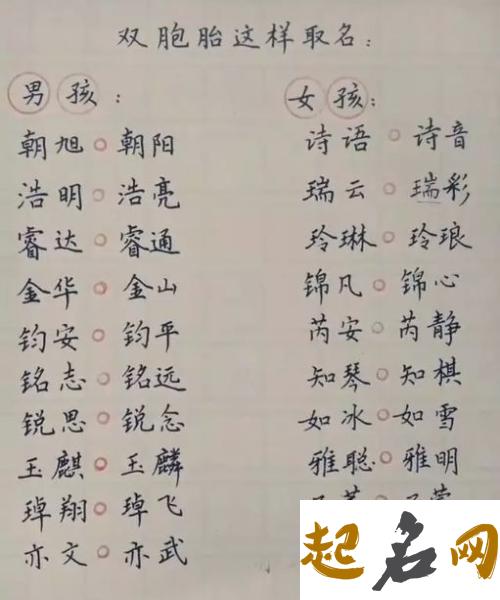 双胞胎这样取名：
男孩：
朝旭○朝阳
浩明○浩亮
睿达○睿通
金华○金山
钧安○钧平
铭志○铭远
锐思○锐念
玉麒○玉麟
琸翔○琸飞
亦文○亦武
女孩：
诗语○诗音
瑞云○瑞彩
玲琳○玲琅
锦凡○锦心
芮安○芮静
知琴○知棋
如冰○如雪
雅聪○雅明
起名网